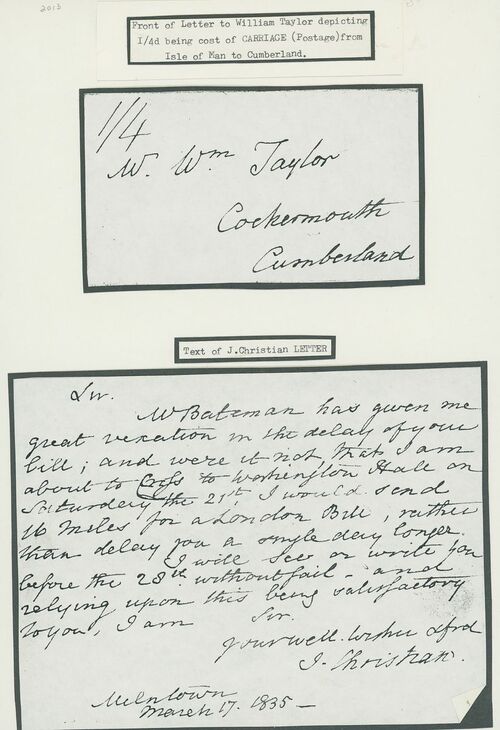 2013
Front of Letter to William Taylor depicting
1/4d being cost of CARRIAGE (Postage)from
Isle of Man to Cumberland.
1/4
Mr. Wm Taylor
Cockermouth
Cumberland
Text of J.Christian LETTER
Sir.
Mr Bateman has given me
great vexation in the delay of your
bill; and were it not that I am
about to Cross to Workington Hall on
Saturday the 21st I would send
16 miles for a London Bill, rather
than delay you a single day longer.
I will see or write you
before the 28th without fail - and
relying upon this being satisfactory
to you, I am Sir.
your well. wisher &
J. Christian.
Milntown
March 17. 1835 -